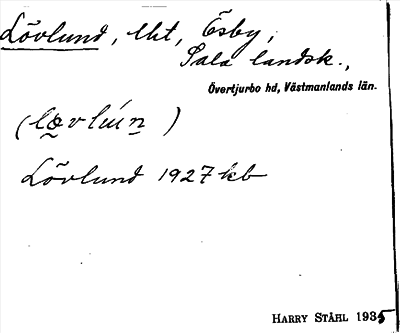 Lövlund, lht, Esby,
Sala landsk.,
Övertjurbo hd, Västmanlands län.
(lövlún)
Lövlund 1927 kb
HARRY STÅHL 1935